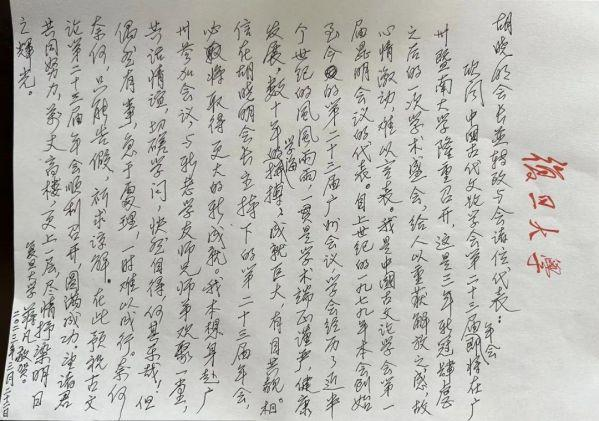 復旦大學
胡晓明会长并转致与会诸位代表：
欣闻中国古代文论学会第二十三届年会即将在广
州暨南大学隆重召开，这是三年新冠肆虐
之后的一次学术盛会，给人以重获解放之感，故
心情激动，难以言表。我是中国古文论学会第一
届昆明会议的代表。自上世纪的一九七九年本会创始
至今的第二十三届广州会议学会经历了近半
个世纪的风风雨雨，一贯是学术端正谨严，健康
发展，数十年学海的拼搏，成就巨大，有目共睹。相
信在胡晓明会长主持下的第二十三届年会，
必将取得更大的新成就。我本想早赴广
州参加会议，与新老学友师兄师弟欢聚一堂，
共话情谊，切磋学问，快然自得何其乐哉！但
偶然有事，急于处理，一时难以成行。奈何
奈何，只能告假，祈求谅解。在此预祝古文
论第二十三届年会顺利召开，圆满成功。望诸君
共同努力，万丈高楼更上一层，尽情明日
之辉光。
复旦大学蒋凡敬贺。
二〇二三年三月二十二日